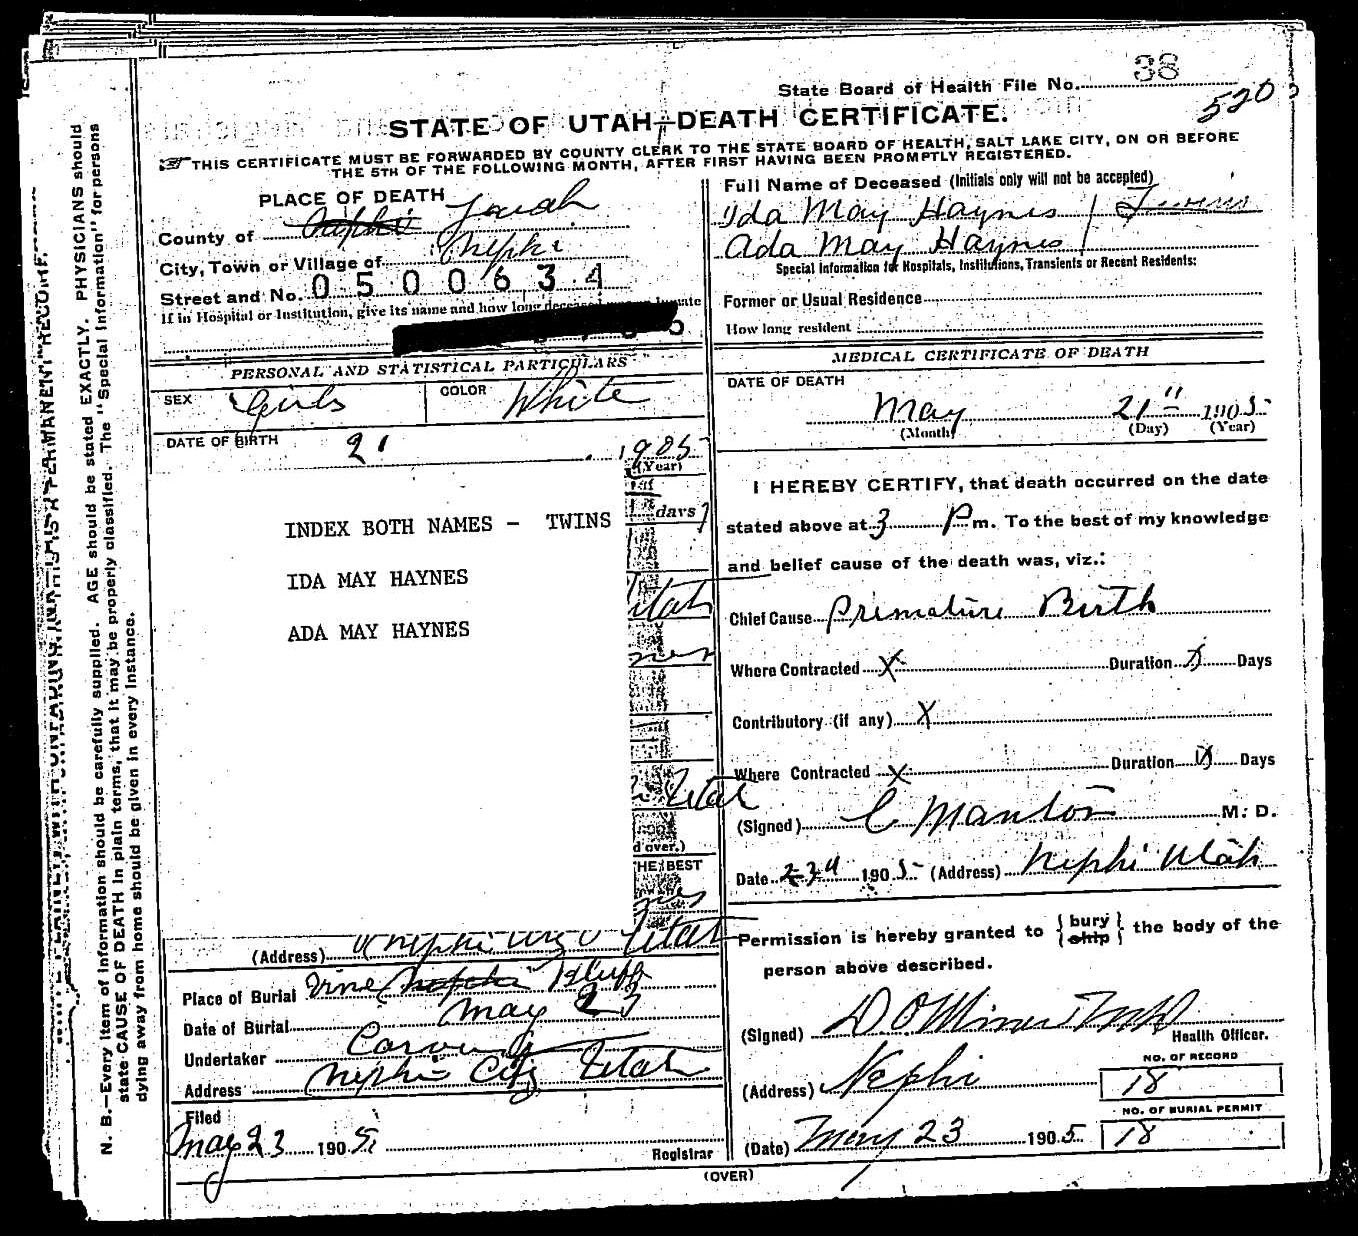 State Board of Health File No. 38
5203
STATE OF UTAH—DEATH CERTIFICATE.
THIS CERTIFICATE MUST BE FORWARDED BY COUNTY CLERK TO THE STATE BOARD OF HEALTH, SALT LAKE CITY, ON OR BEFORE
THE 5TH OF THE FOLLOWING MONTH, AFTER FIRST HAVING BEEN PROMPTLY REGISTERED.
PLACE OF DEATH
County of Nephi Juab
City, Town or Village of Nephi
Street and No. 0500634
If in Hospital or Institution, give its name and how long
PERSONAL AND STATISTICAL PARTICULARS
SEX Girls COLOR White
DATE OF BIRTH 21 1905
(Year)
days
INDEX BOTH NAMES - TWINS
IDA MAY HAYNES
ADA MAY HAYNES
Utah
Utah
d over.)
HE BEST
Utah
(Address) Nephi Utah
Place of Burial Vine Nephi Bluff
Date of Burial May 23
Undertaker
Address Nephi City Utah
Filed
May 23 1905
Registrar
Full Name of Deceased (Initials only will not be accepted)
Ida May Haynes / Twins
Ada May Haynes /
Special Information for Hospitals, Institutions, Transients or Recent Residents:
Former or Usual Residence
How long resident
MEDICAL CERTIFICATE OF DEATH
DATE OF DEATH
May 21" 1905
(Month) (Day) (Year)
I HEREBY CERTIFY, that death occurred on the date
stated above at 3 P m. To the best of my knowledge
and belief cause of the death was, viz.:
Chief Cause Premature Birth
Where Contracted X Duration Days
Contributory (if any) X
Where Contracted X Duration Days
(Signed) C Manton M. D.
Date 23d 1905 (Address) Nephi Utah
Permission is hereby granted to { bury ship } the body of the
person above described.
(Signed) D O Miner MD
Health Officer.
(Address) Nephi
NO. OF RECORD
18
NO. OF BURIAL PERMIT
18
(Date) May 23 1905
(OVER)
N. B.—Every item of information should be carefully supplied. AGE should be stated EXACTLY. PHYSICIANS should
state CAUSE OF DEATH in plain terms, that it may be properly classified. The "Special Information" for persons
dying away from home should be given in every instance.